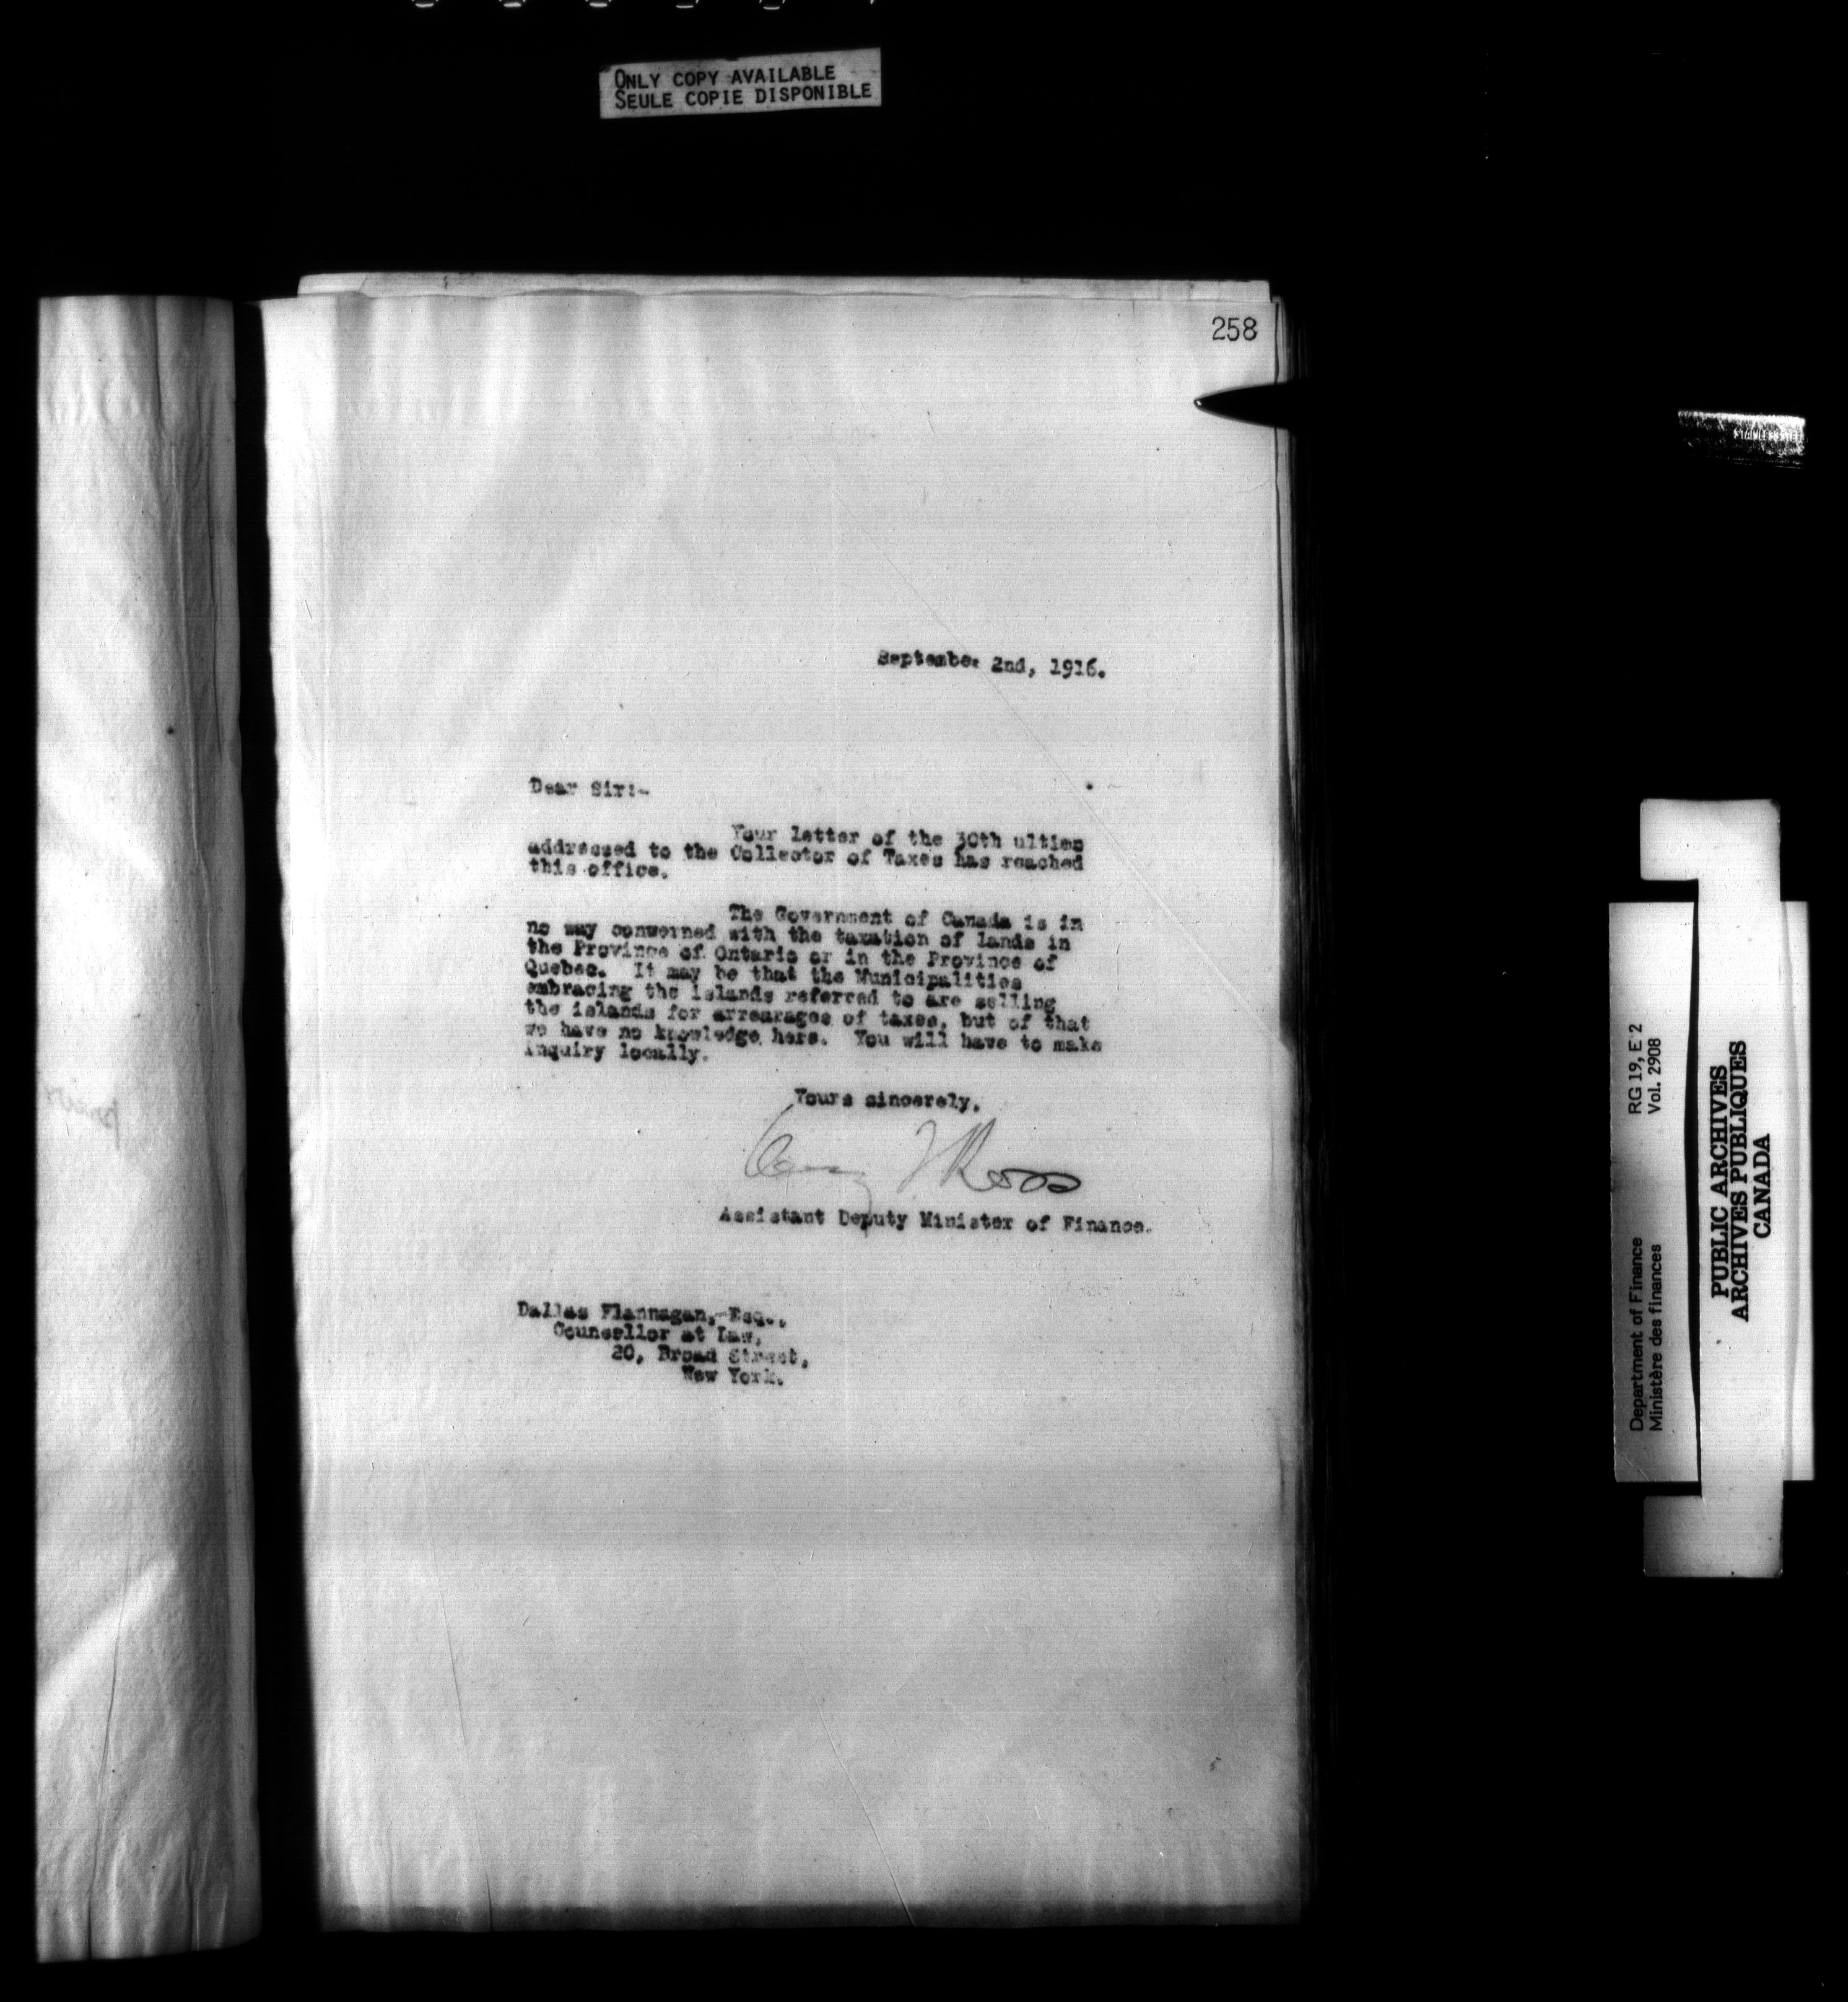 ONLY COPY AVAILABLE
SEULE COPIE DISPONIBLE
258
September 2nd, 1916.
Dear Sir:-
Your letter of the 30th ultimo
addressed to the Collector of Taxes has reached
this office.
The Government of Canada is in
no way concerned with the taxation of lands in
the Province of Ontario or in the Province of
Quebec. It may be that the Municipalities
embracing the islands referred to are selling
the islands for arrearages of taxes, but of that
we have no knowledge here. You will have to make
inquiry locally.
Yours sincerely,
Ross
Assistant Deputy Minister of Finance.
Dallas Flannagan, Esq.,
Counsellor at Law,
20, Broad Street,
New York.
Department of Finance RG 19, E 2
Ministère des finances Vol. 2908
PUBLIC ARCHIVES
ARCHIVES PUBLIQUES
CANADA